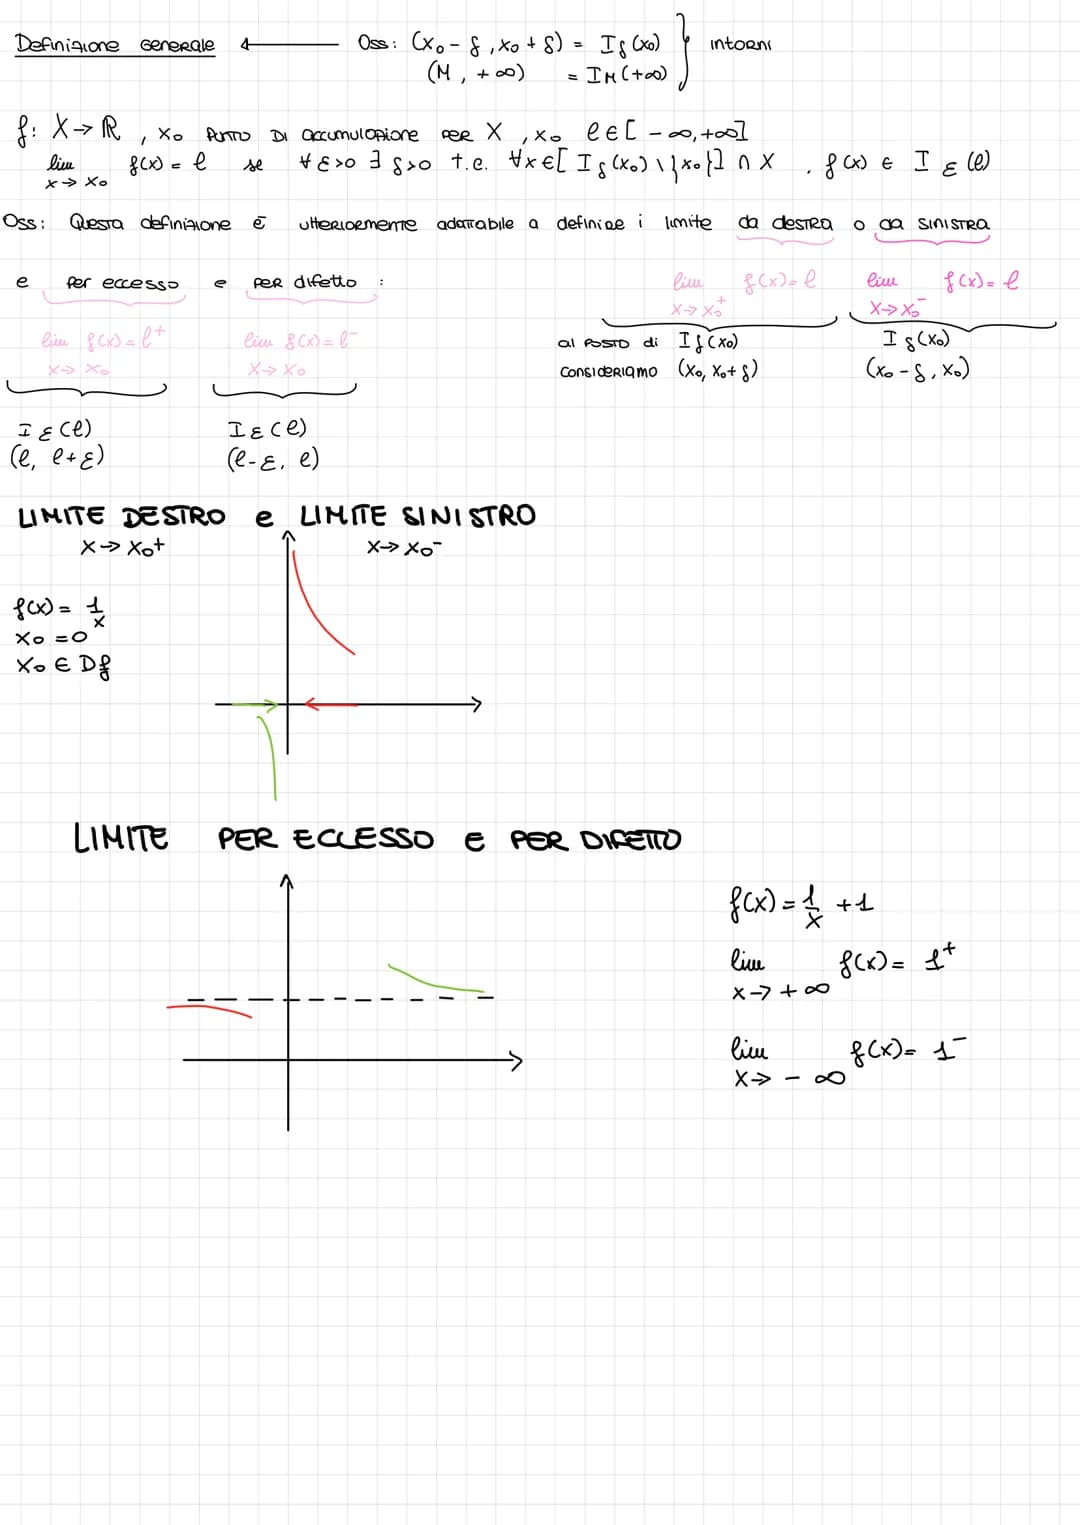 Definizione generale ← Oss: (x₀ - δ, x₀ + δ) = I_δ(x₀) } intorni
(M, +∞) = I_M(+∞)
f: X → ℝ, x₀ PUNTO DI accumulazione PER X, x₀ l ∈ [-∞, +∞]
lim x→x₀ f(x) = l se ∀ε>0 ∃ δ>0 t.c. ∀x ∈ [I_δ(x₀) \ {x₀}] ∩ X . f(x) ∈ I_ε(l)
Oss: Questa definizione è ulteriormente adattabile a definire i limite da destra o da sinistra
e per eccesso e per difetto :
lim x→x₀⁺ f(x) = l
lim x→x₀⁻ f(x) = l
lim x→x₀ f(x) = l⁺
lim x→x₀ f(x) = l⁻
al posto di I_δ(x₀)
I_δ(x₀)
consideriamo (x₀, x₀ + δ)
(x₀ - δ, x₀)
I_ε(l)
(l, l+ε)
I_ε(l)
(l-ε, l)
LIMITE DESTRO e LIMITE SINISTRO
x → x₀⁺
x → x₀⁻
f(x) = 1/x
x₀ = 0
x₀ ∈ Df
LIMITE PER ECCESSO E PER DIFETTO
f(x) = 1/x + 1
lim x→+∞ f(x) = 1⁺
lim x→-∞ f(x) = 1⁻